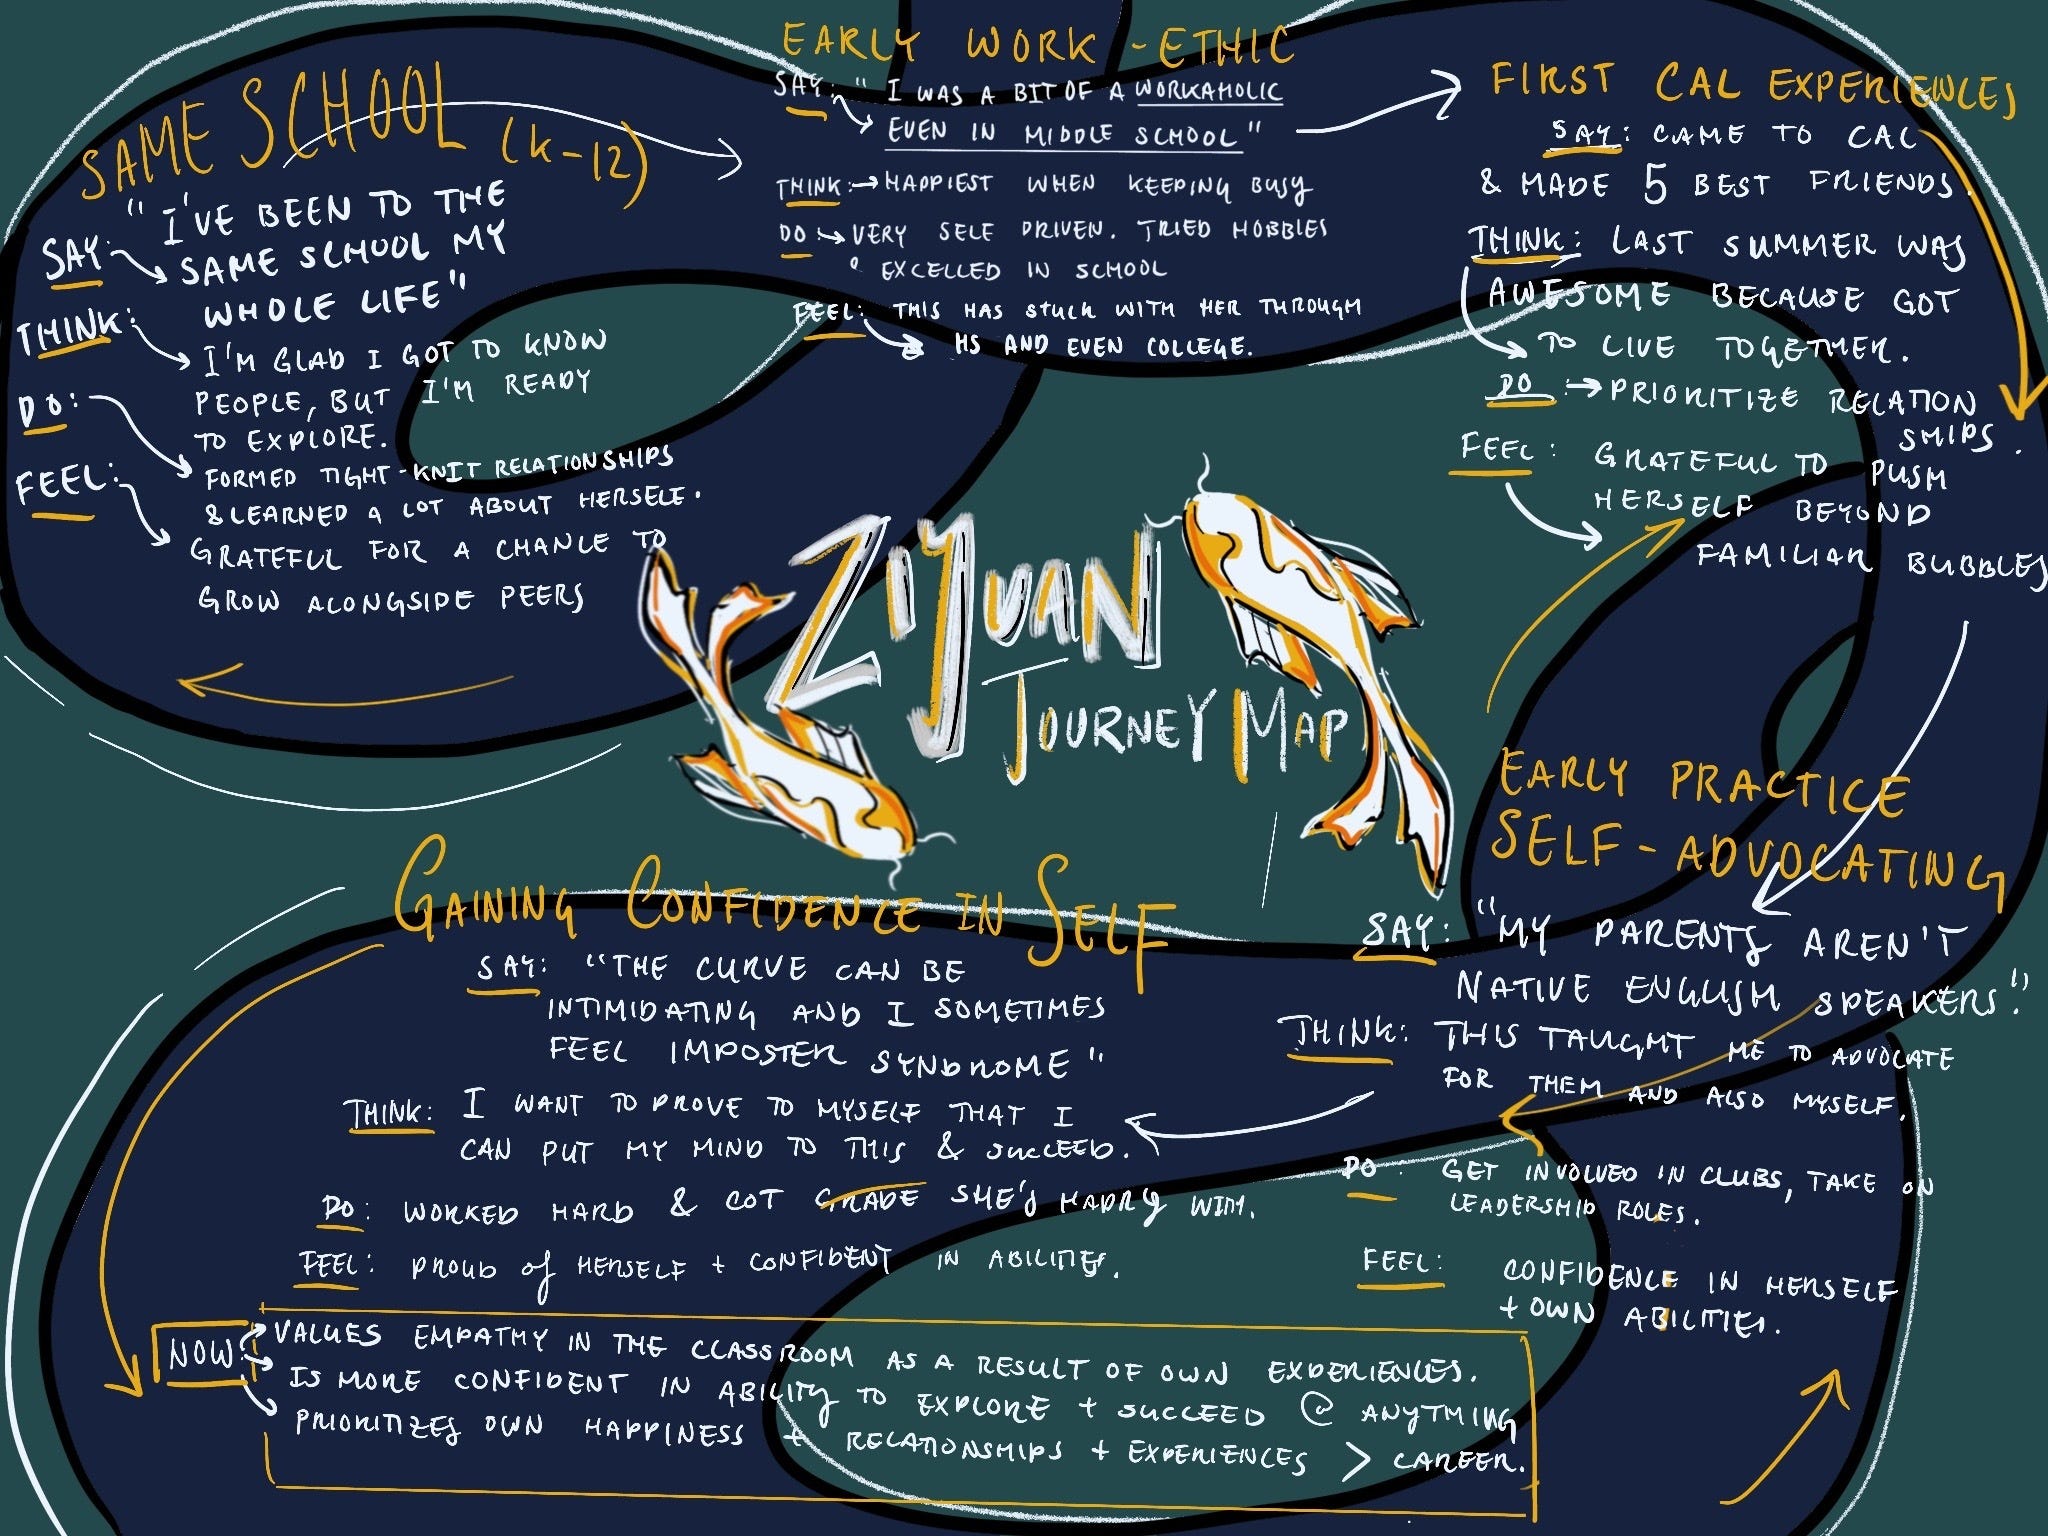 SAME SCHOOL (K-12)
SAY: "I'VE BEEN TO THE
SAME SCHOOL MY
WHOLE LIFE"
THINK: I'M GLAD I GOT TO KNOW
PEOPLE, BUT I'M READY
TO EXPLORE.
DO: FORMED TIGHT-KNIT RELATIONSHIPS
& LEARNED A LOT ABOUT HERSELF.
FEEL: GRATEFUL FOR A CHANCE TO
GROW ALONGSIDE PEERS
EARLY WORK-ETHIC
SAY: "I WAS A BIT OF A WORKAHOLIC
EVEN IN MIDDLE SCHOOL"
THINK: HAPPIEST WHEN KEEPING BUSY
DO: VERY SELF DRIVEN. TRIED HOBBIES
& EXCELLED IN SCHOOL
FEEL: THIS HAS STUCK WITH HER THROUGH
HS AND EVEN COLLEGE.
FIRST CAL EXPERIENCES
SAY: CAME TO CAL
& MADE 5 BEST FRIENDS.
THINK: LAST SUMMER WAS
AWESOME BECAUSE GOT
TO LIVE TOGETHER.
DO: PRIORITIZE RELATION
SHIPS.
FEEL: GRATEFUL TO PUSH
HERSELF BEYOND
FAMILIAR BUBBLES
ZIYUAN
JOURNEY MAP
EARLY PRACTICE
SELF-ADVOCATING
SAY: "MY PARENTS AREN'T
NATIVE ENGLISH SPEAKERS."
THINK: THIS TAUGHT ME TO ADVOCATE
FOR THEM AND ALSO MYSELF.
DO: GET INVOLVED IN CLUBS, TAKE ON
LEADERSHIP ROLES.
FEEL: CONFIDENCE IN HERSELF
+ OWN ABILITIES.
GAINING CONFIDENCE IN SELF
SAY: "THE CURVE CAN BE
INTIMIDATING AND I SOMETIMES
FEEL IMPOSTER SYNDROME"
THINK: I WANT TO PROVE TO MYSELF THAT I
CAN PUT MY MIND TO THIS & SUCCEED.
DO: WORKED HARD & GOT GRADE SHE'S HAPPY WITH.
FEEL: PROUD of HERSELF + CONFIDENT IN ABILITIES.
NOW: VALUES EMPATHY IN THE CLASSROOM AS A RESULT OF OWN EXPERIENCES.
IS MORE CONFIDENT IN ABILITY TO EXPLORE + SUCCEED @ ANYTHING
PRIORITIZES OWN HAPPINESS + RELATIONSHIPS + EXPERIENCES > CAREER.